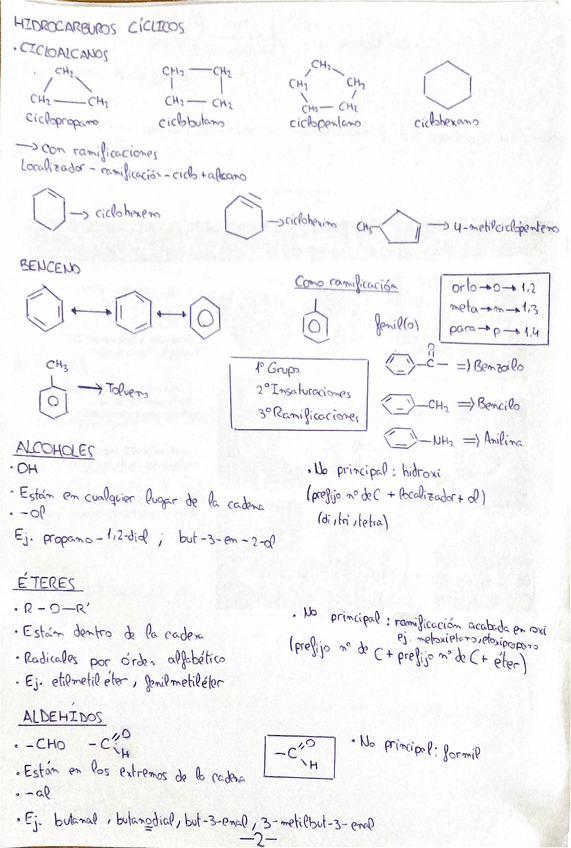 HIDROCARBUROS CÍCLICOS
· CICLOALCANOS
CH2 CH2 CH2
ciclopropano
CH2 CH2 CH2 CH2
ciclobutano
CH2 CH2 CH2 CH2 CH2
ciclopentano
ciclohexano
→ con ramificaciones
Localizador - ramificación - ciclo + alcano
→ ciclohexeno
→ ciclohexino
CH3 → 4-metilciclopenteno
BENCENO
Como ramificación
fenil(o)
orto → o → 1,2
meta → m → 1,3
para → p → 1,4
CH3
→ Tolueno
1º Grupo
2º Insaturaciones
3º Ramificaciones
O
C — ⇒ Benzoilo
— CH2 ⇒ Bencilo
— NH2 ⇒ Anilina
ALCOHOLES
· OH
· Están en cualquier lugar de la cadena
· -ol
Ej. propano-1,2-diol ; but-3-en-2-ol
· No principal: hidroxi
(prefijo nº de C + localizador + ol)
(di, tri, tetra)
ÉTERES
· R-O-R'
· Están dentro de la cadena
· Radicales por órden alfabético
· Ej. etilmetil éter, fenilmetiléter
· No principal: ramificación acabada en oxi
ej. metoxietano, etoxipropano
(prefijo nº de C + prefijo nº de C + éter)
ALDEHÍDOS
· -CHO -C O H
-C O H
· No principal: formil
· Están en los extremos de la cadena
· -al
· Ej. butanal, butanodial, but-3-enal, 3-metilbut-3-enal
-2-